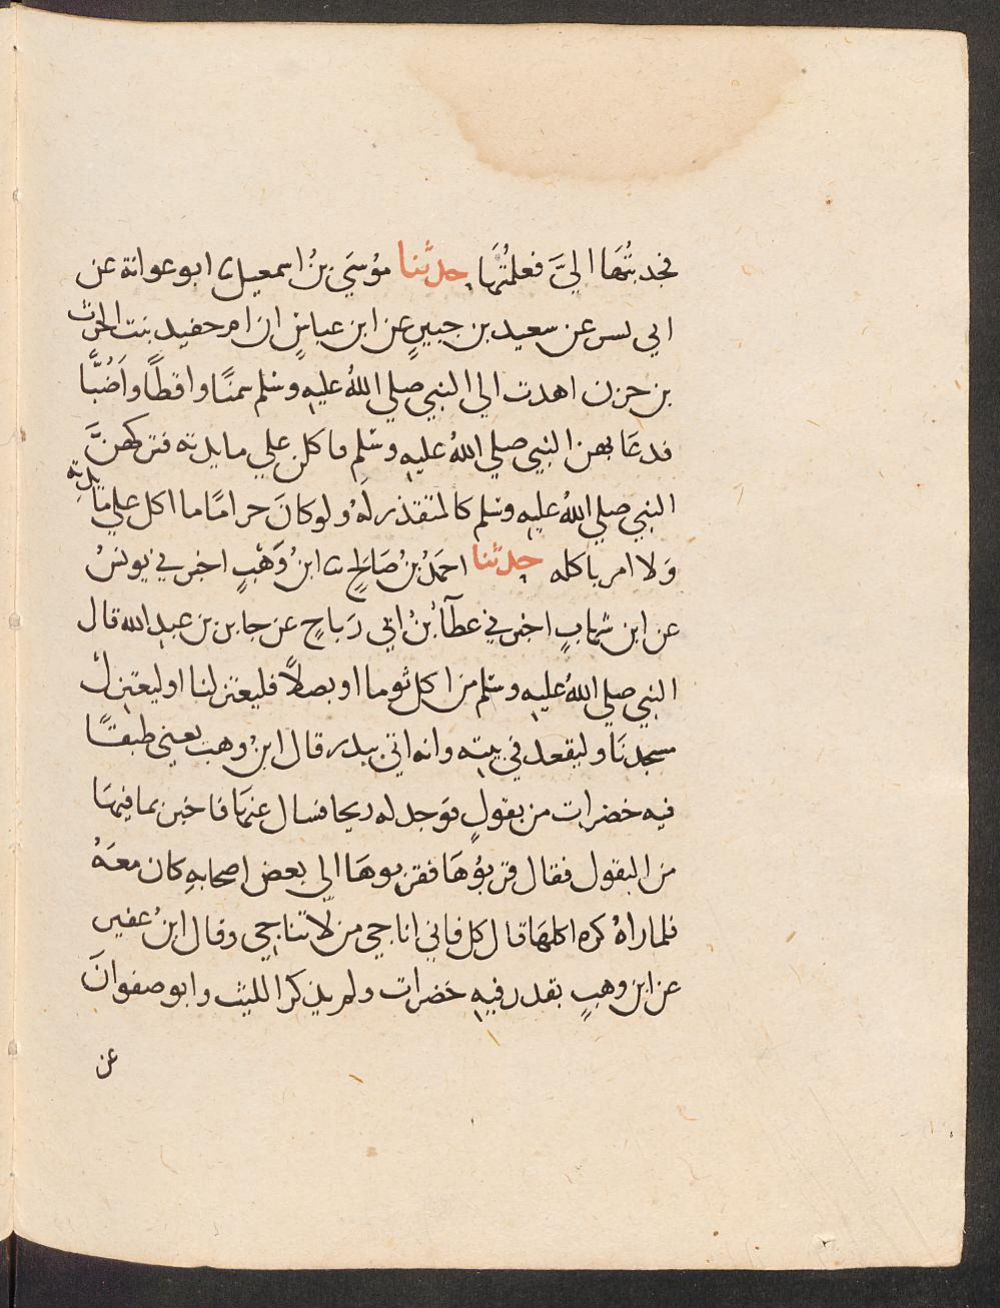 فجذبتُهَا اليَّ فعلمتُهَا حدثنا مُوسَي بنُ اسمعيل ثنا ابو عوانة عن
ابي بسر عن سعيد بن جبيرٍ عن ابن عباسٍ ان ام حفيد بنت الحرث
بن حزن اهدت الي النبي صلي اللهُ عليهِ وسلم سمنًا واقطًا واَضُبًّا
فدعَا بهن النبي صلي اللهُ عليهِ وسلم فاكلن علي مايدته فتركهنَّ
النبي صلي اللهُ عليهِ وسلم كالمتقذر لَهُ ولو كانَ حرامًا ما اكل علي مَايدته
وَلا امر باكله حدثنا احمَدُ بنُ صَالحٍ ثنا ابنُ وَهْبٍ اخبرني يونسُ
عن ابن شهابٍ اخبرني عطآءُ بنُ ابي رَباحٍ عن جابر بن عبد الله قال
النبي صلي اللهُ عليهِ وسلم من اكل ثوما او بصلًا فليعتزلنا او ليعتزل
مسجدنَا وليقعد في بيته وانه اتي ببدر قال ابنُ وهب يعني طبقًا
فيه خضرات من بقولٍ فوَجد له ريحا فسال عنهَا فاخبر بما فيهَا
من البقول فقال قربوُهَا فقربوهَا الي بعض اصحابهِ كان معَهُ
فلما راهُ كره اكلهَا قال كل فاني اناجي من لَّا تناجي وقال ابنُ عفير
عن ابن وهبٍ بقدر فيهِ خضرات ولم يذكر الليث وابو صفوانَ
عن